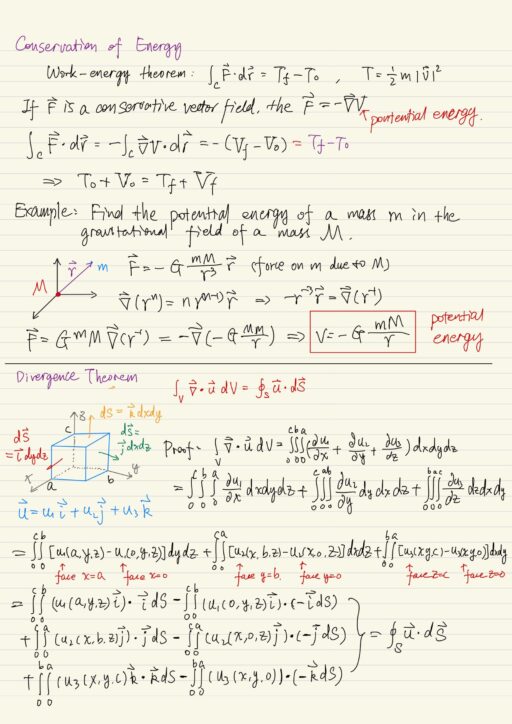 Conservation of Energy
Work-energy theorem: ∫_C F⃗·dr⃗ = T_f - T_0 , T = ½ m |v⃗|²
If F⃗ is a conservative vector field, the F⃗ = -∇⃗V
potential energy.
∫_C F⃗·dr⃗ = -∫_C ∇⃗V·dr⃗ = -(V_f - V_0) = T_f - T_0
⇒ T_0 + V_0 = T_f + V_f
Example: Find the potential energy of a mass m in the
gravitational field of a mass M.
M r⃗ m F⃗ = -G mM/r³ r⃗ (force on m due to M)
∇⃗(rⁿ) = n r^(n-2) r⃗ ⇒ -r⁻³ r⃗ = ∇⃗(r⁻¹)
F⃗ = G m M ∇⃗(r⁻¹) = -∇⃗(-G Mm/r) ⇒ V = -G mM/r potential
energy
Divergence Theorem ∫_V ∇⃗·u⃗ dV = ∮_S u⃗·dS⃗
dS⃗ = k⃗ dxdy
dS⃗ = i⃗ dydz
dS⃗ = j⃗ dxdz
z c x a b y
Proof: ∫_V ∇⃗·u⃗ dV = ∫₀^c∫₀^b∫₀^a (∂u₁/∂x + ∂u₂/∂y + ∂u₃/∂z) dxdydz
= ∫₀^c∫₀^b∫₀^a ∂u₁/∂x dxdydz + ∫₀^c∫₀^a∫₀^b ∂u₂/∂y dydxdz + ∫₀^b∫₀^a∫₀^c ∂u₃/∂z dzdxdy
u⃗ = u₁i⃗ + u₂j⃗ + u₃k⃗
= ∫₀^c∫₀^b [u₁(a,y,z) - u₁(0,y,z)] dydz + ∫₀^c∫₀^a [u₂(x,b,z) - u₂(x,0,z)] dxdz + ∫₀^b∫₀^a [u₃(x,y,c) - u₃(x,y,0)] dxdy
face x=a face x=0 face y=b face y=0 face z=c face z=0
= ∫₀^c∫₀^b (u₁(a,y,z) i⃗)·i⃗ dS - ∫₀^c∫₀^b (u₁(0,y,z) i⃗)·(-i⃗ dS)
+ ∫₀^c∫₀^a (u₂(x,b,z) j⃗)·j⃗ dS - ∫₀^c∫₀^a (u₂(x,0,z) j⃗)·(-j⃗ dS) = ∮_S u⃗·dS⃗
+ ∫₀^b∫₀^a (u₃(x,y,c) k⃗·k⃗ dS - ∫₀^b∫₀^a (u₃(x,y,0))·(-k⃗ dS)